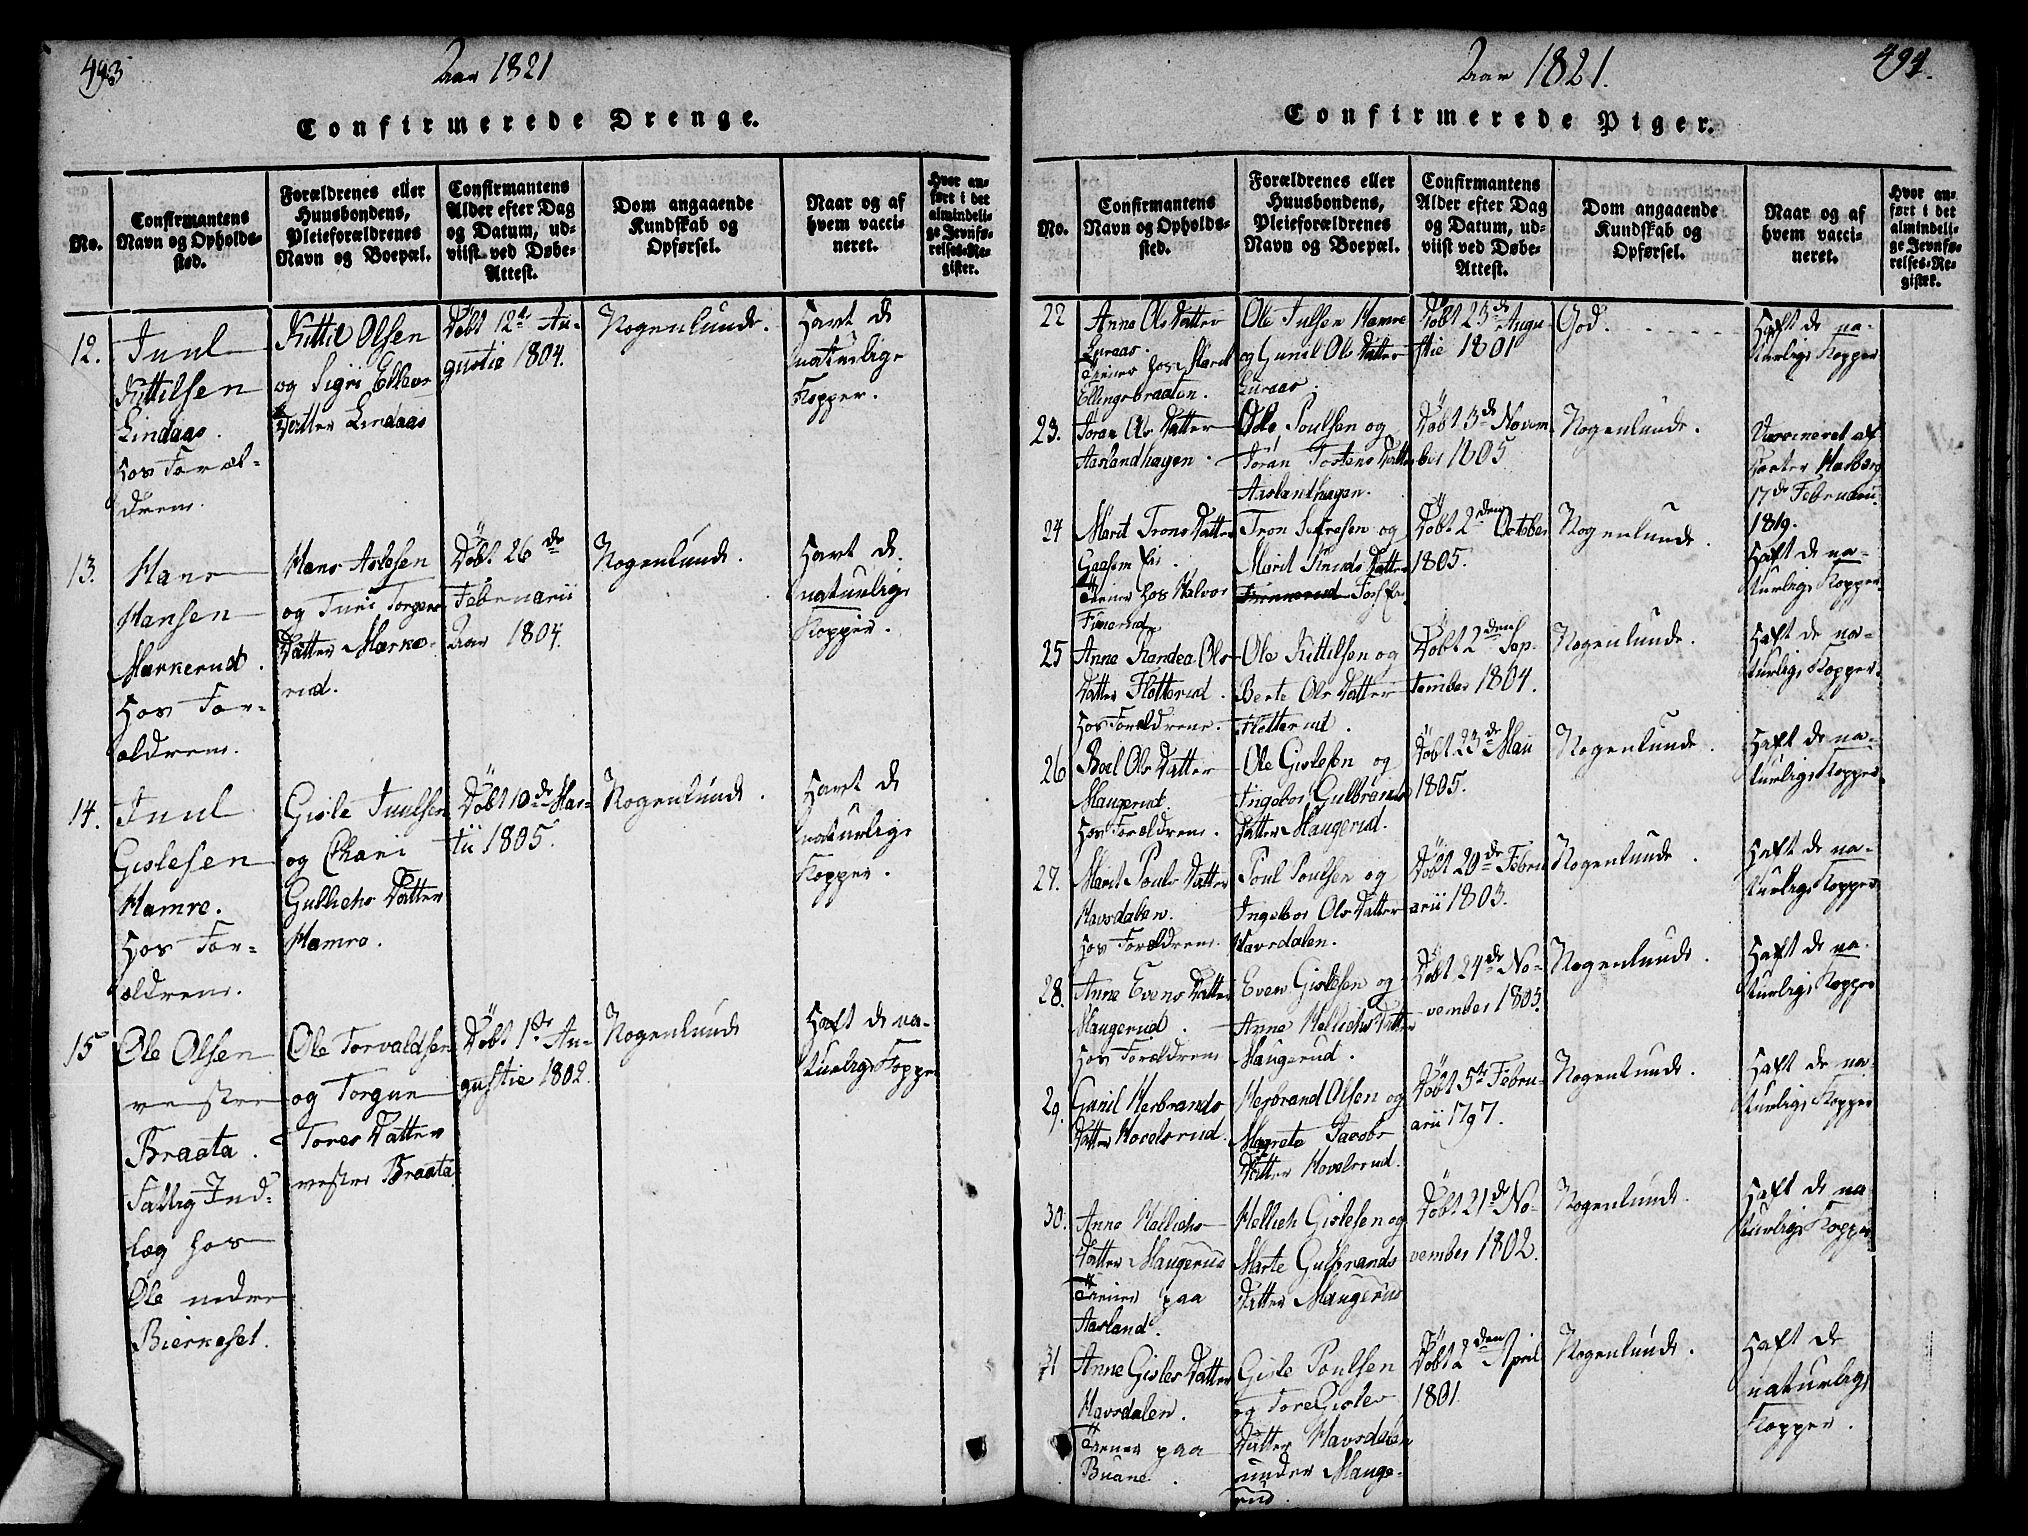 493
Aar 1821
Confirmerede Drenge.
No.
Confirmantens
Navn og Opholds-
sted.
Forældrenes eller
Huusbondens,
Pleieforældrenes
Navn og Boepæl.
Confirmantens
Alder efter Dag
og Datum, ud-
viist ved Døbe-
Attest.
Dom angaaende
Kundskab og
Opførsel.
Naar og af
hvem vacci-
neret.
Hvor an-
ført i det
almindeli-
ge Jevnfø-
relses-Re-
gister.
12.
Juul
Kittilsen
Lindaas.
hos Foræl-
drene.
Kittil Olsen
og Sigri Ellevs
Datter Lindaas
Døbt 12te Au-
gustie 1804.
Nogenlunde.
Havt de
naturlige
Kopper.
13.
Hans
Hansen
Markerud.
hos For-
ældrene.
Hans Aslesen
og Turi Torgers
Datter Marke-
rud.
Døbt 26de
Februarii
Aar 1804.
Nogenlunde.
Havt de
naturlige
Kopper.
14.
Juul
Gislesen
Hamre.
hos For-
ældrene.
Gisle Juulsen
og Chari
Gullichs Datter
Hamre.
Døbt 10de Mar-
tii 1805.
Nogenlunde.
Havt de
naturlige
Kopper.
15
Ole Olsen
vestre
Braata.
Fattig Ind-
læg hos
Ole nedre
Bierkeset.
Ole Torvaldsen
og Torgun
Tores Datter
vestre Braata
Døbt 1ste Au-
gustie 1802.
Nogenlunde
Haft de na-
turlige Kopper
Aar 1821.
494.
Confirmerede Piger.
No.
Confirmantens
Navn og Opholds-
sted.
Forældrenes eller
Huusbondens,
Pleieforældrenes
Navn og Boepæl.
Confirmantens
Alder efter Dag
og Datum, ud-
viist ved Døbe-
Attest.
Dom angaaende
Kundskab og
Opførsel.
Naar og af
hvem vacci-
neret.
Hvor an-
ført i det
almindeli-
ge Jevnfø-
relses-Re-
gister.
22
Anne Ols Datter
Luraas.
Tiener hos Marit
Ellingsbraaten.
Ole Julsen Hamre
og Gunil Ols Datter
Luraas.
Døbt 23de Augu
stie 1801
God.
Haft de na-
turlige Kopper
23.
Jøran Ols Datter
Aaslandhagen.
Ole Poulsen og
Jøran Tostens Datter
Aaslandhagen.
Døbt 3de Novem
ber 1805
Nogenlunde.
Vaccineret af
Doctor
17de Februarii
1819.
24
Marit Trons Datter
Gaasem
Tiener hos Halvor
Tron Sefresen og
Marit Knuds Datter
Døbt 2den October
1805.
Nogenlunde.
Haft de na-
turlige Kopper
25
Anne Kandea Ols
Datter Flotterud.
hos Forældrene.
Ole Kittilsen og
Berte Ols Datter
Flotterud.
Døbt 2den Sep-
tember 1804.
Nogenlunde.
Haft de na-
turlige Kopper.
26
Boel Ols Datter
Maugerud.
hos Forældrene.
Ole Gislesen og
Ingebor Gulbrands
Datter Maugerud.
Døbt 23de Mau
1805.
Nogenlunde.
Haft de na-
turlige Kopper
27.
Marit Pouls Datter
Havsdalen.
hos Forældrene.
Poul Poulsen og
Ingebor Ols Datter
Havsdalen.
Døbt 20de Febru
arii 1803.
Nogenlunde.
Haft de na-
turlige Kopper
28.
Anne Evens Datter
Maugerud.
hos Forældrene
Even Gislesen og
Anne Hellichs Datter
Maugerud.
Døbt 24de No-
vember 1805.
Nogenlunde.
Haft de na-
turlige Kopper
29.
Gunil Herbrands
Datter Hovelsrud.
Herbrand Olsen og
Magrete Jacobs
Datter Hovelsrud.
Døbt 5te Febru-
arii 1797.
Nogenlunde.
Haft de na-
turlige Kopper
30.
Anne Hellichs
Datter Maugerud
Tiener paa
Aasland.
Hellich Gislesen og
Marte Gulbrands
Datter Maugerud
Døbt 21de No-
vember 1802.
Nogenlunde.
Haft de na
turlige Kopper
31
Anne Gisles Datter
Havsdalen.
Tiener paa
Buane.
Gisle Poulsen
og Tore Gisles
Datter Havsdalen
under Mauge-
rud.
Døbt 2den April
1801.
Nogenlunde.
Haft de
naturlige
Kopper.